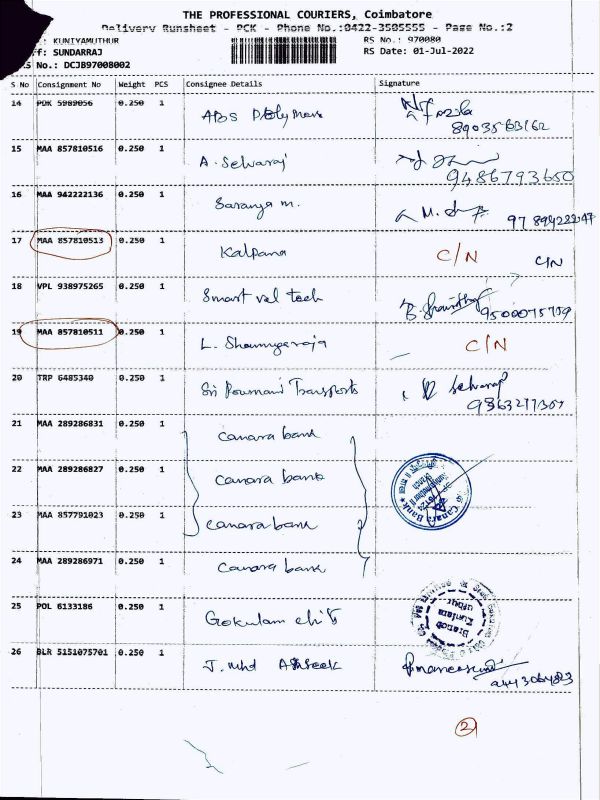 THE PROFESSIONAL COURIERS, Coimbatore
Delivery Runsheet - PCK - Phone No.:0422-3505555 - Page No.:2
: KUNIYAMUTHUR
RS No.: 970080
f: SUNDARRAJ
RS Date: 01-Jul-2022
S No.: DCJB97008002
S No Consignment No Weight PCS Consignee Details Signature
14 PDK 5989056 0.250 1
15 MAA 857810516 0.250 1 A. Selvaraj
9486793650
16 MAA 942222136 0.250 1 Saranya m.
17 MAA 857810513 0.250 1 Kalpana C/N C/N
18 VPL 938975265 0.250 1 Smart vel tech
9500075709
19 MAA 857810511 0.250 1 L. Shanmugaraja C/N
20 TRP 6485340 0.250 1 Sri Pournami Transports Selvaraj
21 MAA 289286831 0.250 1 Canara bank
22 MAA 289286827 0.250 1 Canara bank
Canara Bank
23 MAA 857791023 0.250 1 Canara bank
24 MAA 289286971 0.250 1 Canara bank
25 POL 6133186 0.250 1 Gokulam chits
Branch
26 BLR 5151075701 0.250 1 J. Mhd
2